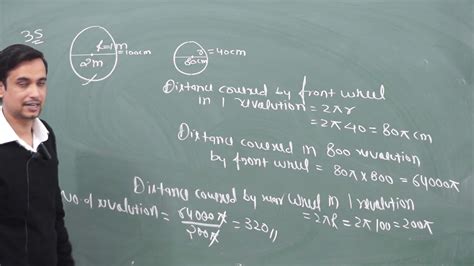 35
R=1m
=100cm
2m
r
=40cm
80cm
Distance covered by front wheel
in 1 revolution = 2πr
= 2π40 = 80πcm
Distance covered in 800 revolution
by front wheel = 80π×800 = 64000π
Distance covered by rear wheel in 1 revolution
= 2πR = 2π100 = 200π
No of revolution = 64000π/200π = 320